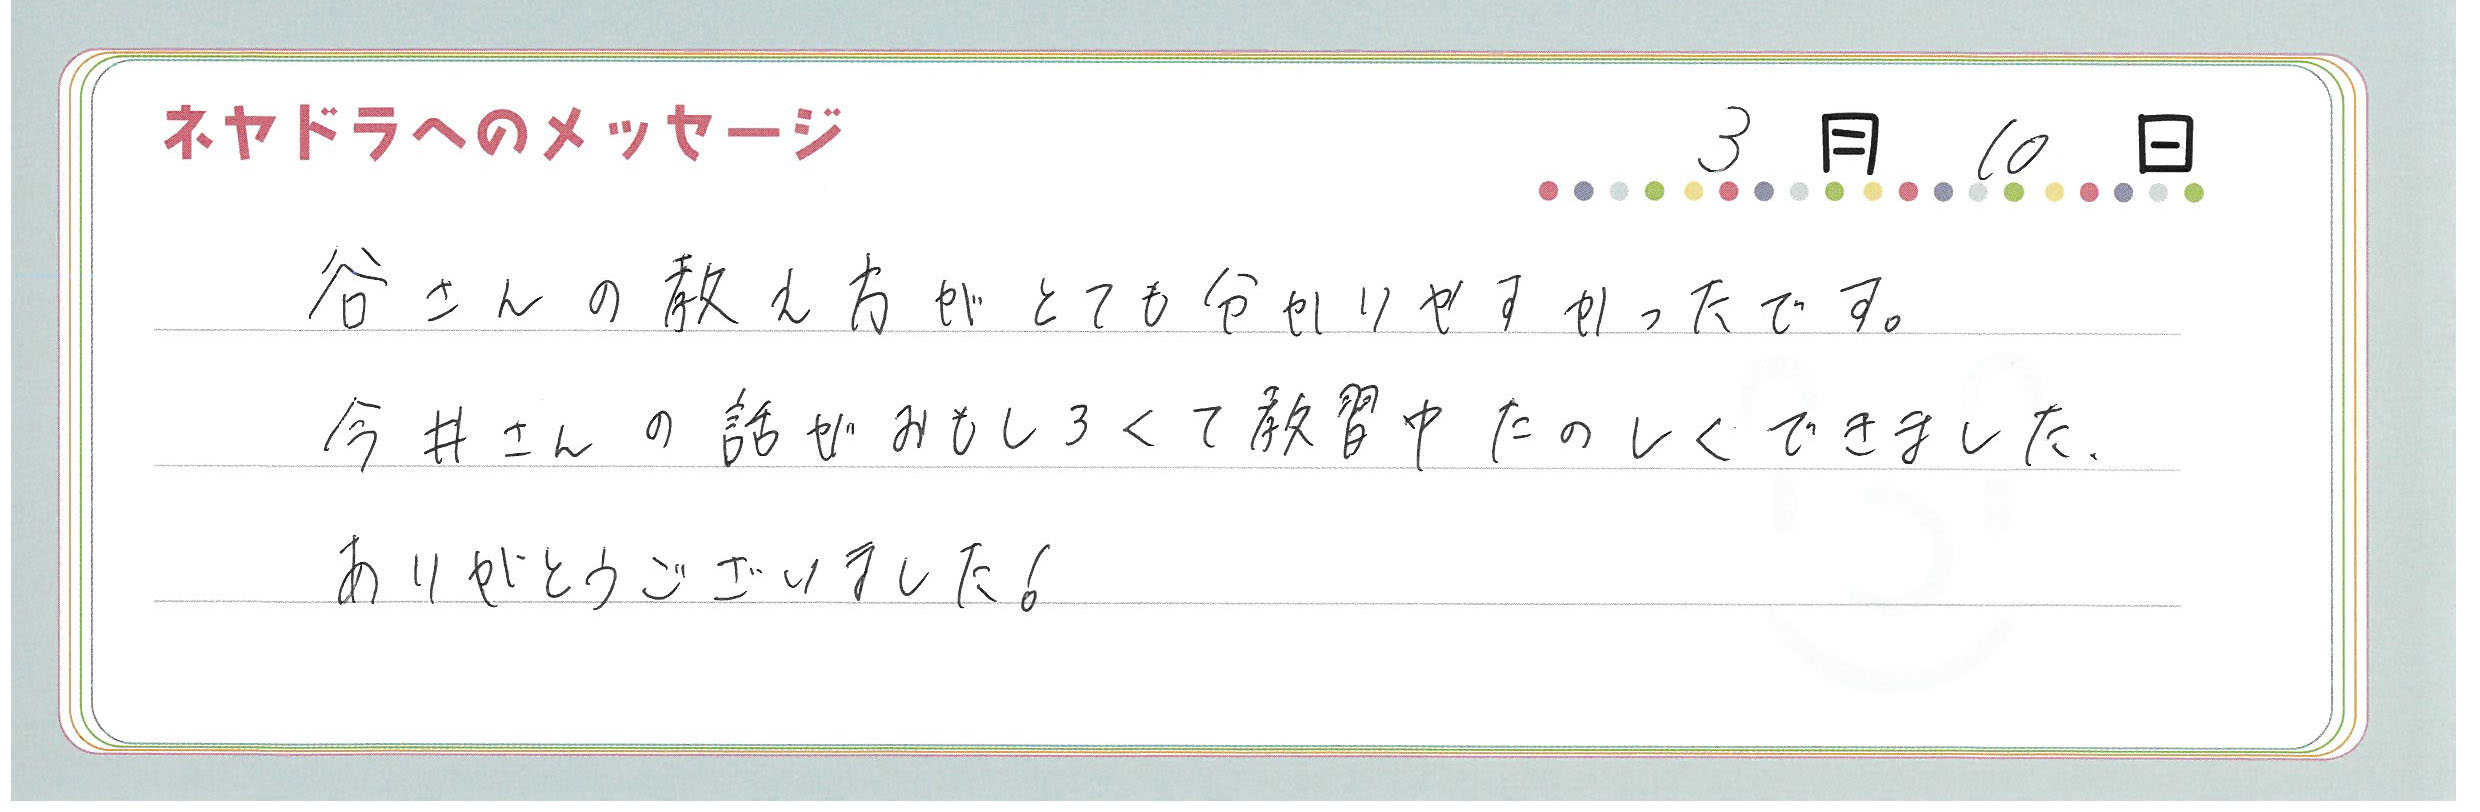 ネヤドラへのメッセージ
3月10日
谷さんの教え方がとても分かりやすかったです。
今井さんの話がおもしろくて教習中たのしくできました.
ありがとうございました!